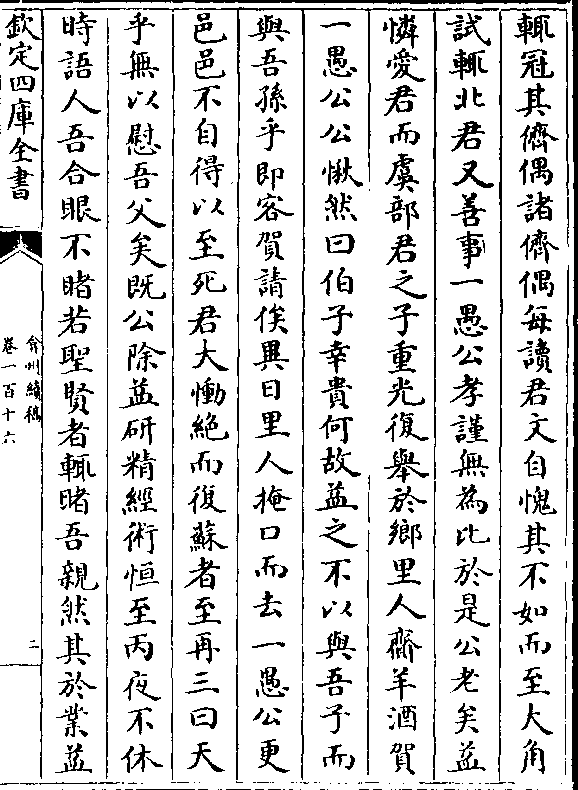 輒冠其儕偶諸儕偶每讀君文自愧其不如而至大角
試輒北君又善事一愚公孝謹無為比於是公老矣益
憐愛君而虞部君之子重光復舉於鄉里人齎羊酒賀
一愚公公愀然曰伯子幸貴何故益之不以與吾子而
與吾孫乎即客賀請俟異日里人掩口而去一愚公更
邑邑不自得以至死君大慟絶而復蘇者至再三曰天
乎無以慰吾父矣既公除益研精經術恒至丙夜不休
時語人吾合眼不睹若聖賢者輒睹吾親然其於業益
欽定四庫全書
弇州續稿
卷一百十六
二